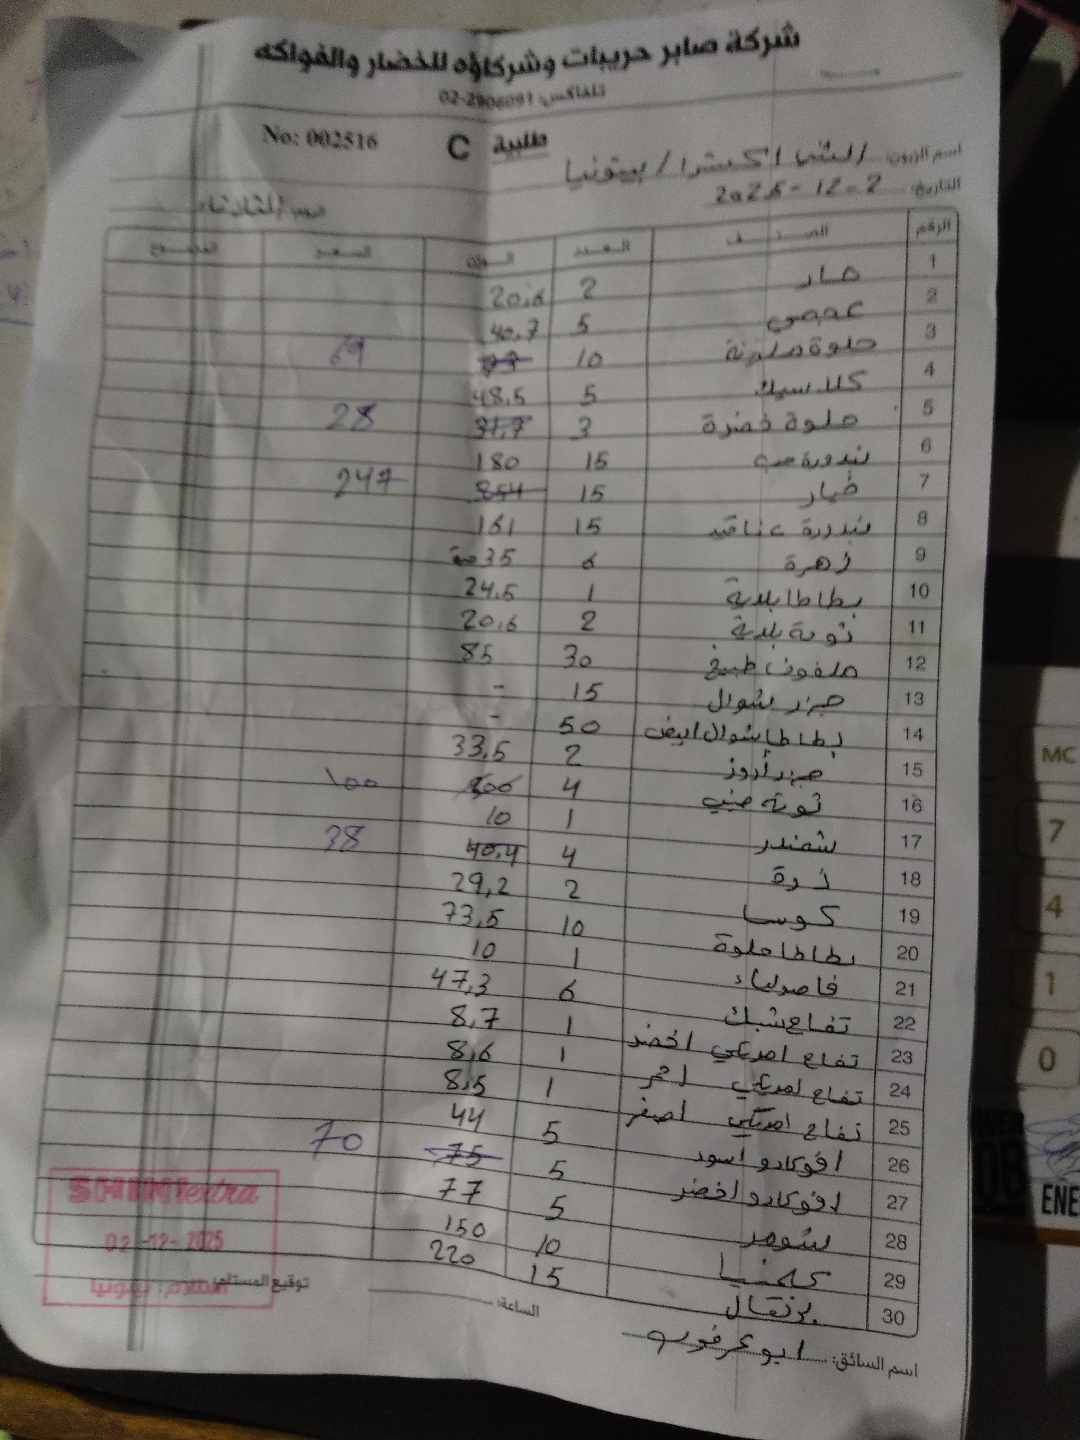 شركة صابر حريبات وشركاؤه للخضار والفواكه
تلفاكس: 02-2906091
طلبية C No: 002516
اسم الزبون: الشني اكسترا / بيتونيا
التاريخ: 2025-12-2
اليوم: الثلاثاء
الرقم الصنف العدد الوزن السعر المجموع
1 حار 2 20.6
2 عجمي 5 40.7
3 حلوة ملونة 10 69
4 كلاسيك 5 48.5
5 حلوة خضرة 3 37.7 28
6 بندورة حب 15 180
7 خيار 15 854 247
8 بندورة عناقيد 15 161
9 زهرة 6 35
10 بطاطا بلدية 1 24.5
11 ثومة بلدية 2 20.6
12 ملفوف طبيخ 30 85
13 جزر شوال 15 -
14 بطاطا شوال ابيض 50 -
15 جزر أروز 2 33.5
16 ثومة صيني 4 ١٠٠
17 شمندر 1 10
18 ذرة 4 40.4 38
19 كوسا 2 29,2
20 بطاطا حلوة 10 73,5
21 فاصولياء 1 10
22 تفاح شبك 6 47,3
23 تفاح امريكي اخضر 1 8,7
24 تفاح امريكي احمر 1 8,6
25 تفاح امريكي اصفر 1 8,5
26 افوكادو اسود 5 44
27 افوكادو اخضر 5 75 70
28 شومر 5 77
29 كلمنتينا 10 150
30 برتقال 15 220
SHINI extra
02-12-2025
استلام: بيتونيا
توقيع المستلم:
الساعة:
اسم السائق: ابو عرقوب
MC
7
4
1
0
ENE